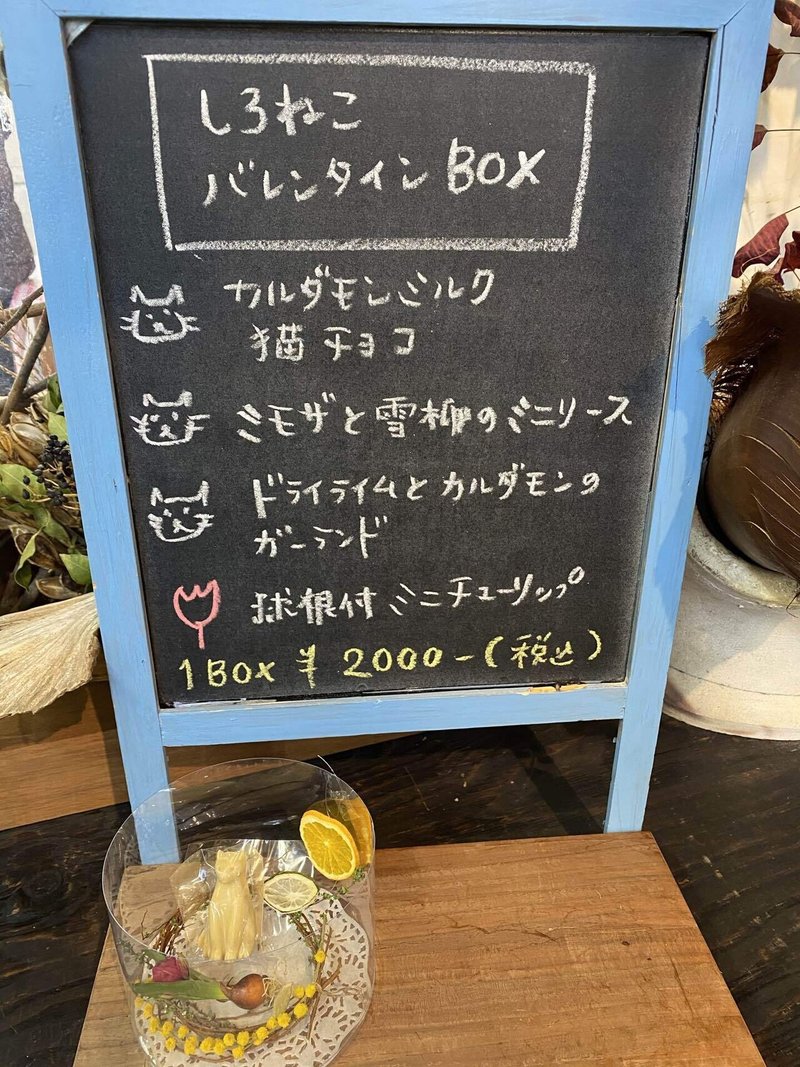 しろねこ
バレンタインBOX
カルダモンミルク
猫チョコ
ミモザと雪柳のミニリース
ドライライムとカルダモンの
ガーランド
球根付ミニチューリップ
1BOX ¥2000-(税込)